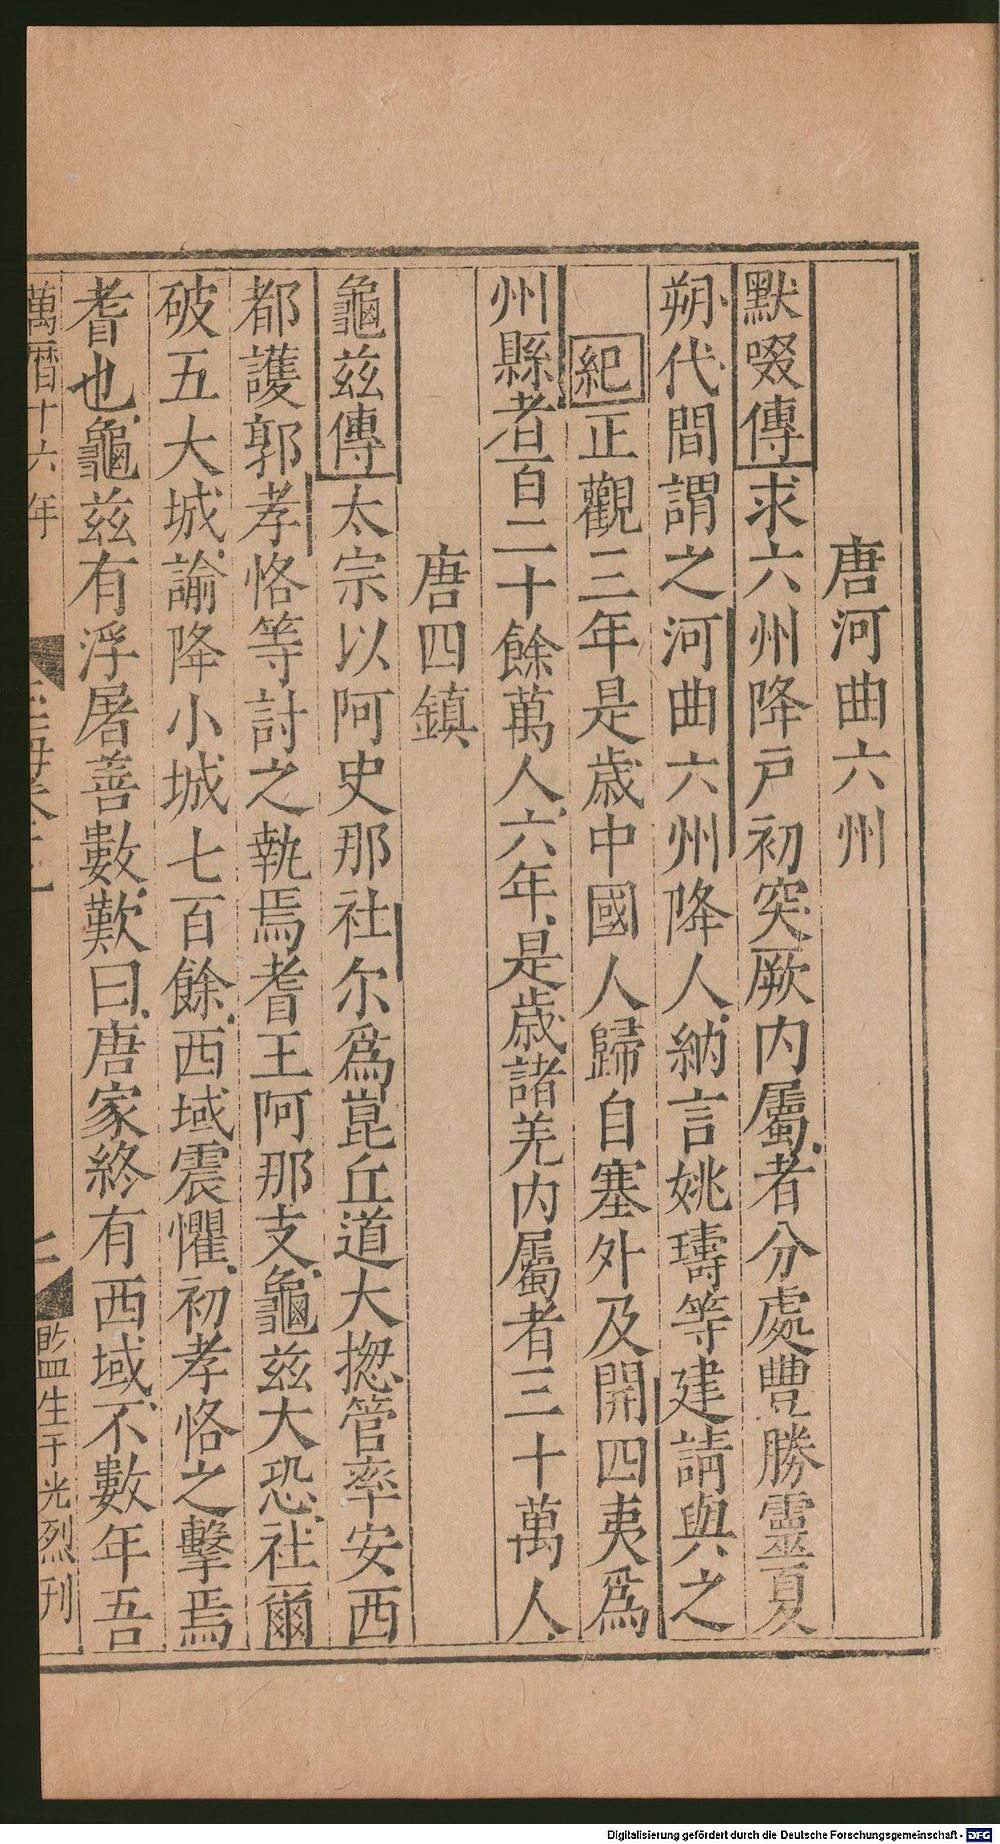 唐河曲六州
默啜傳求六州降戶初突厥内屬者分處豐勝靈夏
朔代間謂之河曲六州降人納言姚璹等建請與之
紀正觀三年是歲中國人歸自塞外及開四夷爲
州縣者百二十餘萬人六年是歲諸羌内屬者三十萬人
唐四鎮
龜茲傳太宗以阿史那社尔爲崑丘道大揔管率安西
都護郭孝恪等討之執焉耆王阿那支龜茲大恐社爾
破五大城諭降小城七百餘西域震懼初孝恪之擊焉
耆也龜茲有浮屠善數歎曰唐家終有西域不數年吾
萬曆十六年
監生于光烈刊
Digitalisierung gefördert durch die Deutsche Forschungsgemeinschaft - DFG